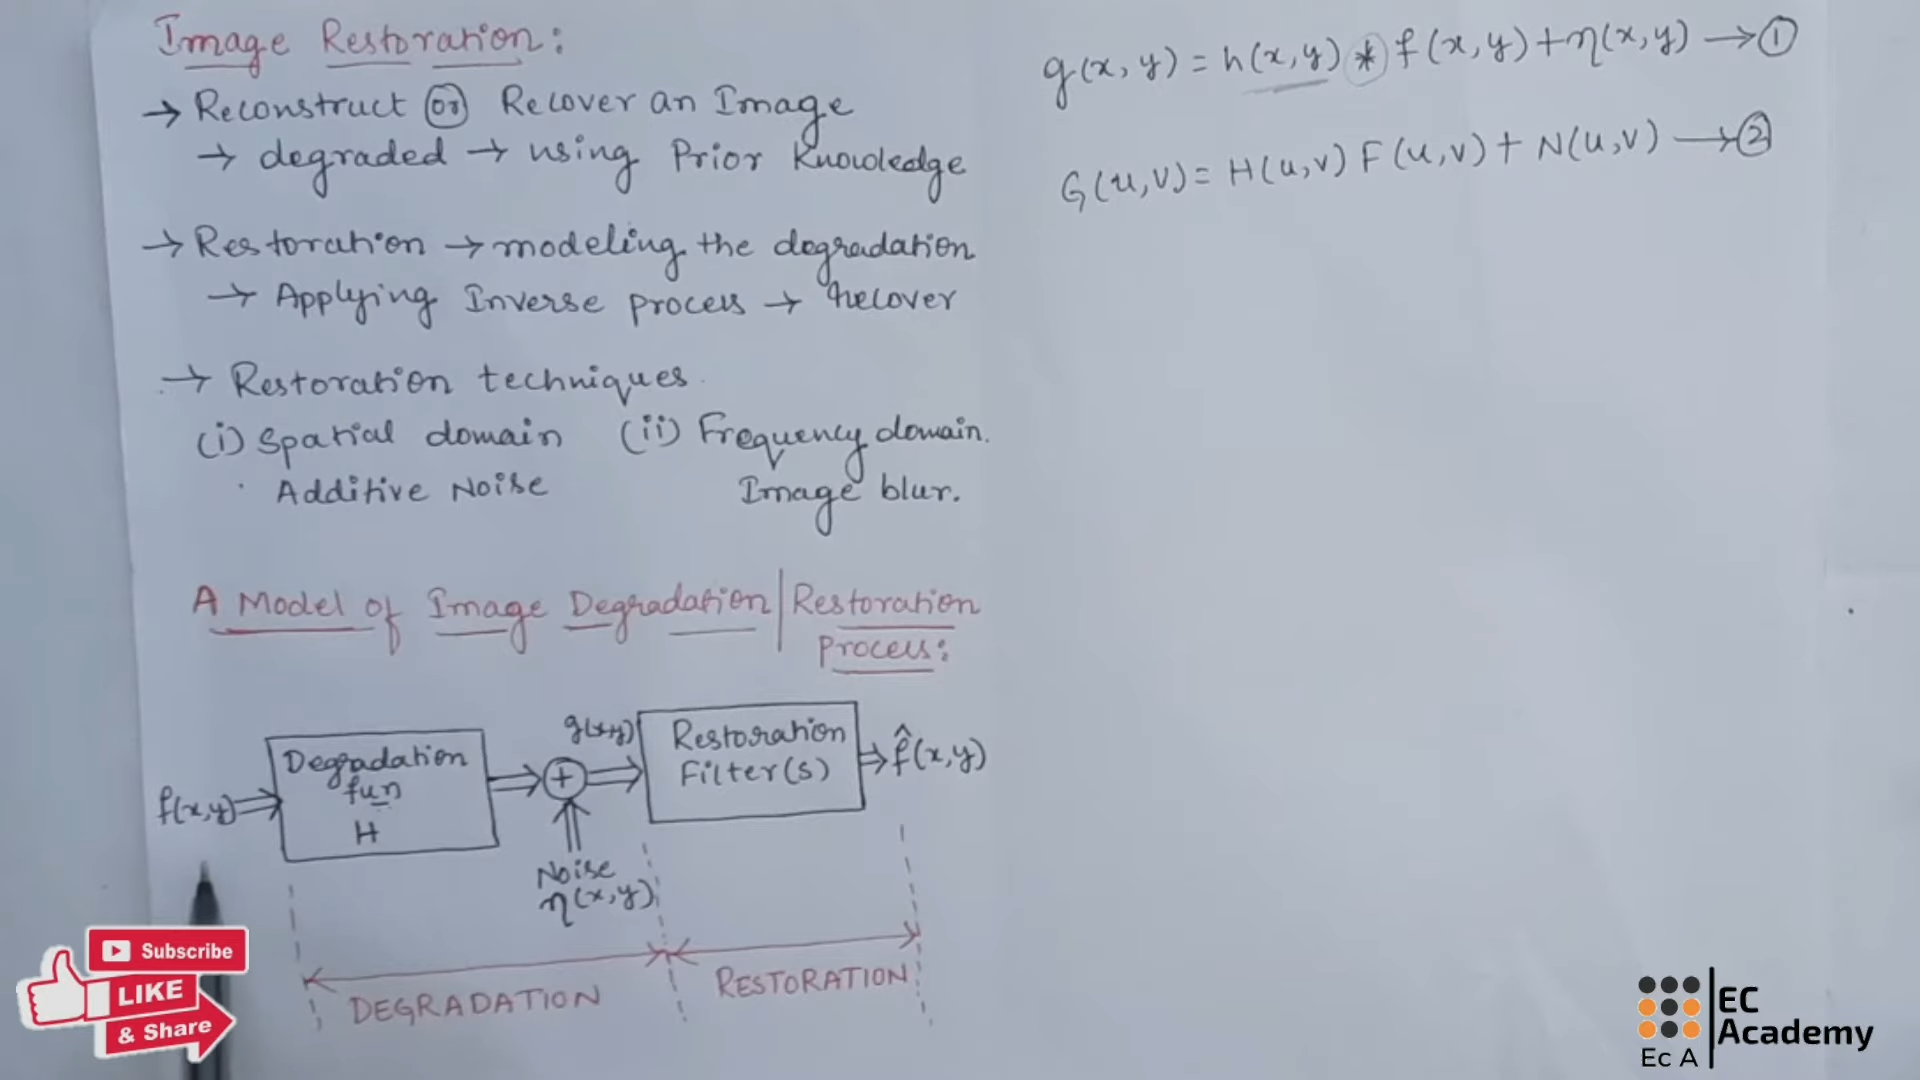 Image Restoration:
→ Reconstruct (or) Recover an Image
→ degraded → using Prior Knowledge
→ Restoration → modeling the degradation
→ Applying Inverse process → recover
→ Restoration techniques.
(i) Spatial domain (ii) Frequency domain.
Additive Noise Image blur.
A Model of Image Degradation | Restoration
Process:
f(x,y) ⇒ Degradation
fun
H
⇒ + ⇒
g(x,y)
Noise
η(x,y)
Restoration
Filter(s)
⇒ f̂(x,y)
DEGRADATION
RESTORATION
g(x,y) = h(x,y) * f(x,y) + η(x,y) → ①
G(u,v) = H(u,v) F(u,v) + N(u,v) → ②
Subscribe
LIKE
& Share
EC
Academy
Ec A